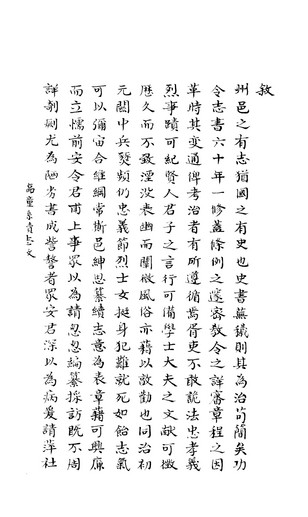 敘
州邑之有志猶國之有史也史書蕪穢則其為治茍簡矣功
令志書六十年一修蓋條例之邃密教令之詳審章程之因
革時其變通俾考治者有所遵循胥吏不敢詭法忠孝義
烈事蹟可紀賢人君子之言行可備學士大夫之文獻可徵
歷久而不致湮沒表幽而闡微風俗亦藉以激勸也同治初
元關中兵燹頻仍忠義節烈士女挺身犯難就死如飴志氣
可以彌宙合維綱常衛邑紳思纂續志意為表章藉可興廉
而立懦前安令君甫上事眾以為請怱怱編纂採訪既不周
詳剞劂尤為陋劣書成訾謷者眾安君深以為病爰請萍社
高陵縣續志文